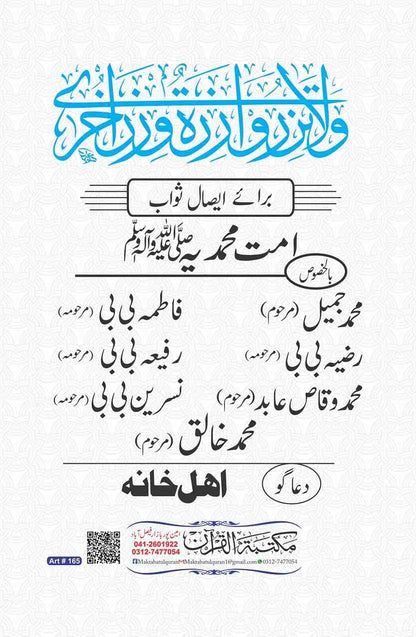 ولا تزر وازرة وزر اخرى
برائے ایصال ثواب
امت محمدیہ صلی اللہ علیہ وآلہ وسلم
بالخصوص
محمد جمیل (مرحوم) فاطمہ بی بی (مرحومہ)
رضیہ بی بی (مرحومہ) رفیعہ بی بی (مرحومہ)
محمد وقاص عابد (مرحوم) نسرین بی بی (مرحومہ)
محمد خالق (مرحوم)
دعا گو اھل خانہ
مکتبۃ القرآن
امین پور بازار فیصل آباد
041-2601922
0312-7477054
Maktabatulquran Maktabatulquran1@gmail.com 0312-7477054
Art # 165